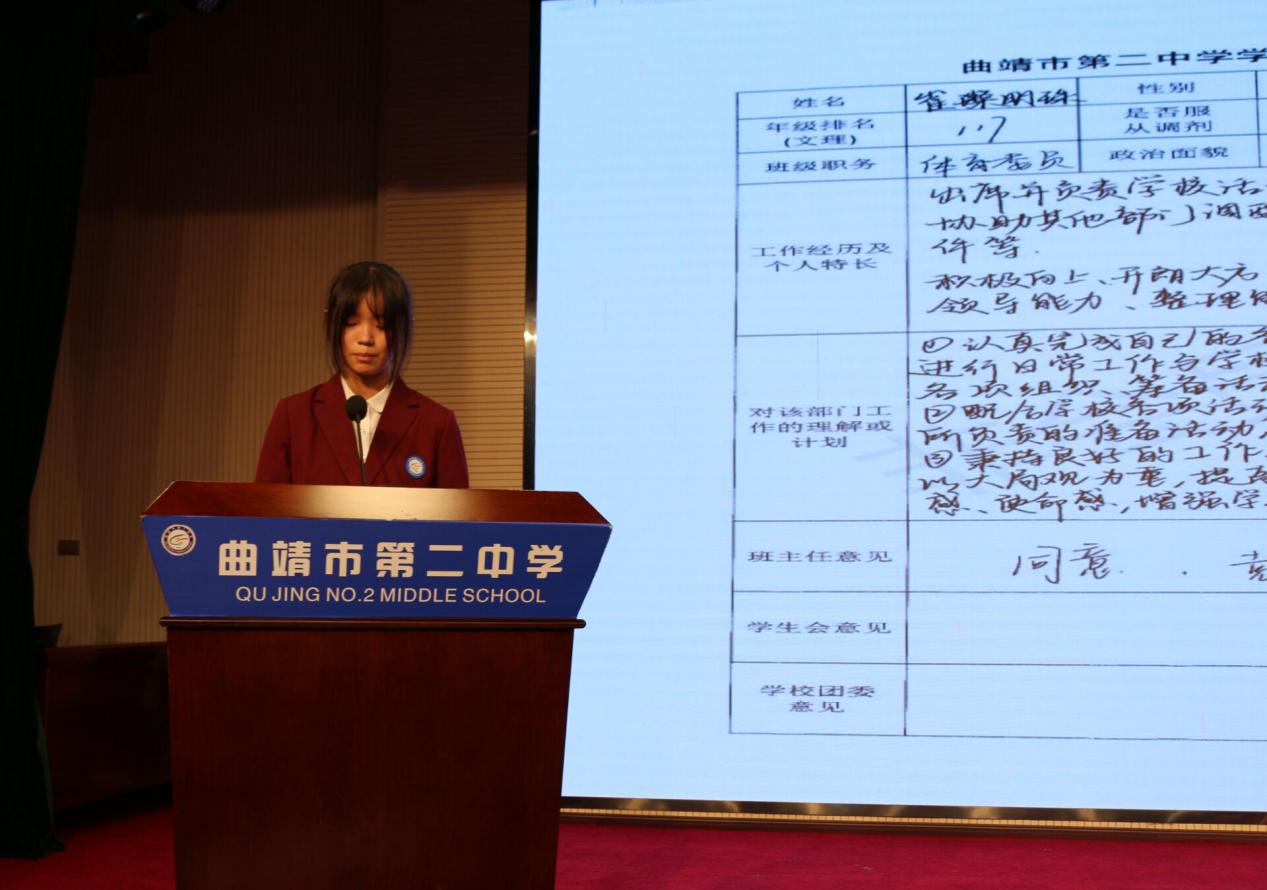 曲靖市第二中学学
姓名
崔璨明珠
性别
年级排名
(文理)
117
是否服
从调剂
班级职务
体育委员
政治面貌
工作经历及
个人特长
出席并负责学校活
协助其他部门调
件等.
积极向上、开朗大方
领导能力、整理
对该部门工
作的理解或
计划
认真完成自己的
进行日常工作与学校
各项组织、筹备活
配合学校各项活动
所负责的准备活动
秉持良好的工作
以大局观为重,提高
感、使命感,增强学
班主任意见
同意.
学生会意见
学校团委
意见
曲靖市第二中学
QU JING NO.2 MIDDLE SCHOOL